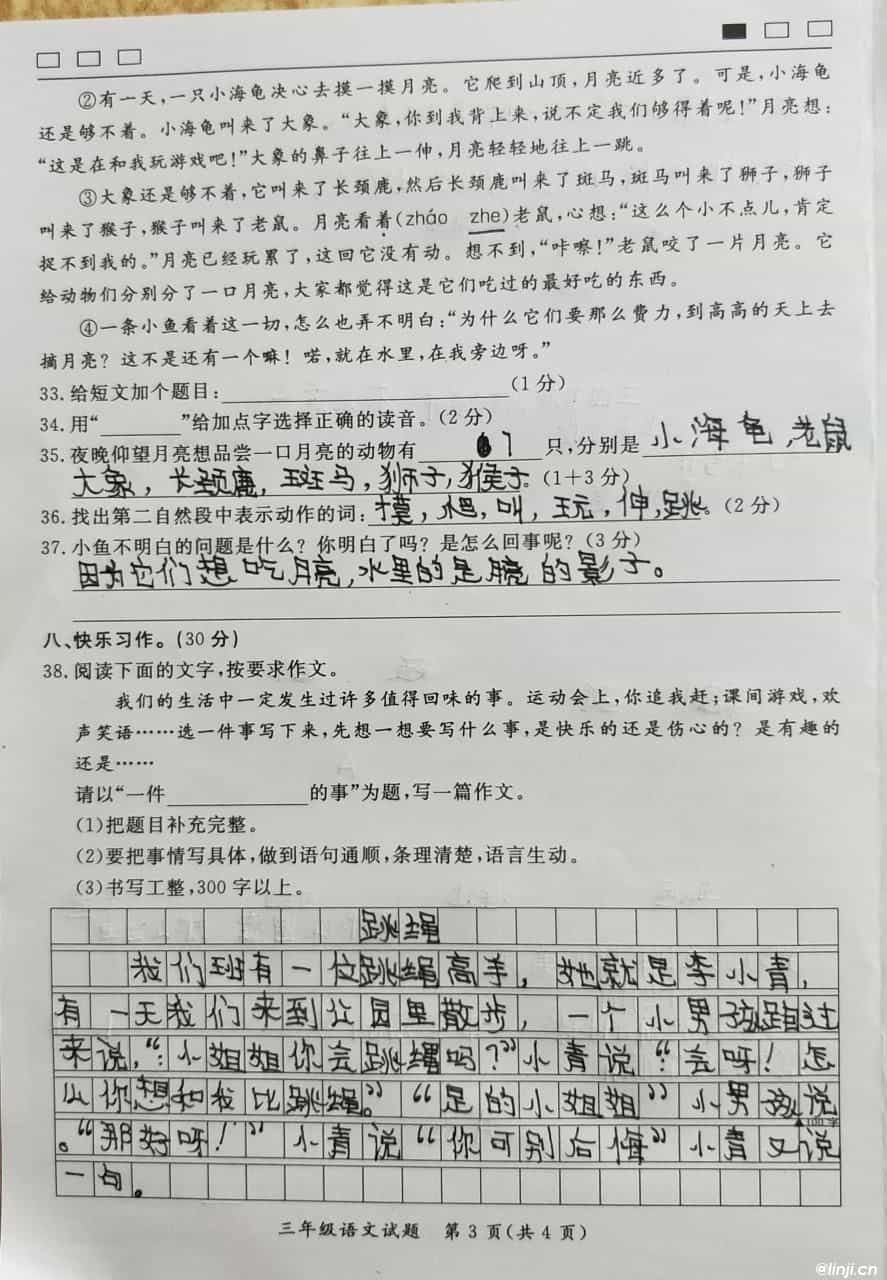 ②有一天,一只小海龟决心去摸一摸月亮。它爬到山顶,月亮近多了。可是,小海龟
还是够不着。小海龟叫来了大象。“大象,你到我背上来,说不定我们够得着呢!”月亮想:
“这是在和我玩游戏吧!”大象的鼻子往上一伸,月亮轻轻地往上一跳。
③大象还是够不着,它叫来了长颈鹿,然后长颈鹿叫来了斑马,斑马叫来了狮子,狮子
叫来了猴子,猴子叫来了老鼠。月亮看着(zháo zhe)老鼠,心想:“这么个小不点儿,肯定
捉不到我的。”月亮已经玩累了,这回它没有动。想不到,“咔嚓!”老鼠咬了一片月亮。它
给动物们分别分了一口月亮,大家都觉得这是它们吃过的最好吃的东西。
④一条小鱼看着这一切,怎么也弄不明白:“为什么它们要那么费力,到高高的天上去
摘月亮?这不是还有一个嘛!喏,就在水里,在我旁边呀。”
33.给短文加个题目:____(1分)
34.用“____”给加点字选择正确的读音。(2分)
35.夜晚仰望月亮想品尝一口月亮的动物有 7 只,分别是 小海龟,老鼠
大象,长颈鹿,斑马,狮子,猴子。(1+3分)
36.找出第二自然段中表示动作的词:摸,爬,叫,玩,伸,跳。(2分)
37.小鱼不明白的问题是什么?你明白了吗?是怎么回事呢?(3分)
因为它们想吃月亮,水里的是月亮的影子。
八、快乐习作。(30分)
38.阅读下面的文字,按要求作文。
我们的生活中一定发生过许多值得回味的事。运动会上,你追我赶;课间游戏,欢
声笑语……选一件事写下来,先想一想要写什么事,是快乐的还是伤心的?是有趣的
还是……
请以“一件____的事”为题,写一篇作文。
(1)把题目补充完整。
(2)要把事情写具体,做到语句通顺,条理清楚,语言生动。
(3)书写工整,300字以上。
跳绳
我们班有一位跳绳高手,她就是李小青,
有一天我们来到公园里散步,一个小男孩跑过
来说,“:小姐姐你会跳绳吗?”小青说“:会呀!怎
么你想和我比跳绳。”“是的小姐姐”小男孩说
。“那好呀!”小青说“你可别后悔”小青又说
100字
一句。
三年级语文试题 第3页(共4页)
@linji.cn